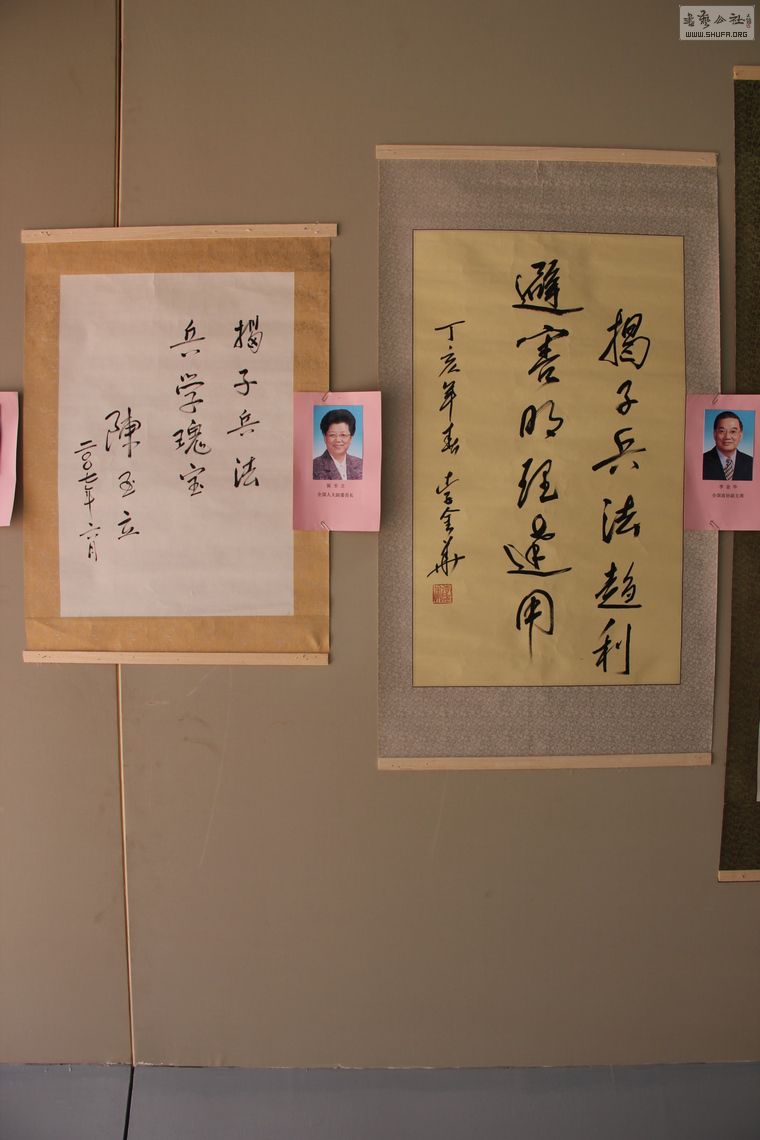 書藝公社
WWW.SHUFA.ORG
揭子兵法
兵学瑰宝
陳至立
二〇〇七年六月
陈至立
全国人大副委员长
揭子兵法趋利
避害明理達用
丁亥年春 李金华
李金华
全国政协副主席